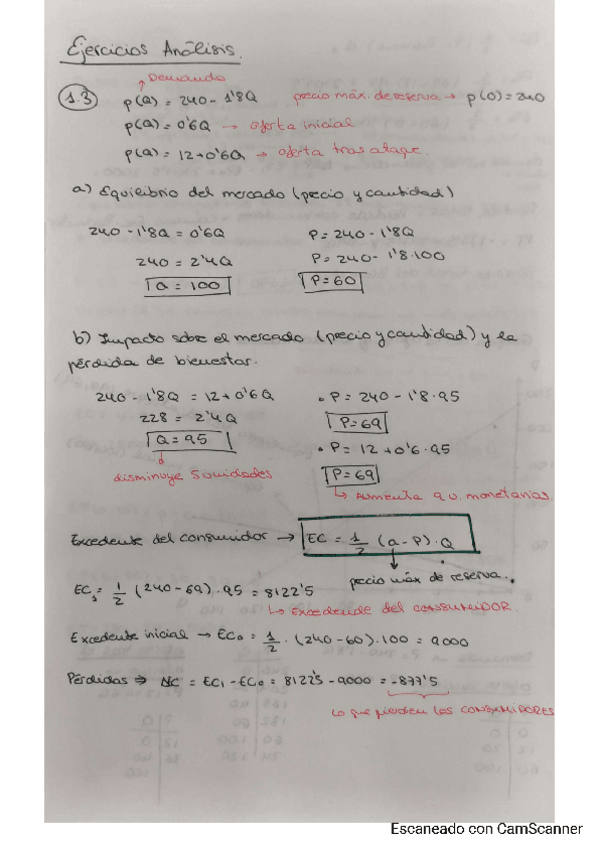 Ejercicios Análisis.
Demanda
1.3 p(Q) = 240 - 1'8Q precio máx. de reserva → p(0) = 240
p(Q) = 0'6Q → oferta inicial
p(Q) = 12+0'6Q → oferta tras ataque.
a) Equilibrio del mercado (precio y cantidad)
240 - 1'8Q = 0'6Q P = 240 - 1'8Q
240 = 2'4Q P = 240 - 1'8·100
Q = 100 P = 60
b) Impacto sobre el mercado (precio y cantidad) y la
pérdida de bienestar.
240 - 1'8Q = 12+0'6Q • P = 240 - 1'8·95
228 = 2'4Q P = 69
Q = 95 • P = 12+0'6·95
disminuye 5 unidades P = 69
↳ Aumenta 9 u. monetarias
Excedente del consumidor → EC = 1/2 (a-P)·Q
precio máx de reserva.
EC₁ = 1/2 (240-69)·95 = 8122'5
↳ Excedente del CONSUMIDOR.
Excedente inicial → EC₀ = 1/2 · (240-60)·100 = 9000
Pérdidas ⇒ ΔC = EC₁ - EC₀ = 8122'5 - 9000 = -877'5
Lo que pierden los CONSUMIDORES
Escaneado con CamScanner